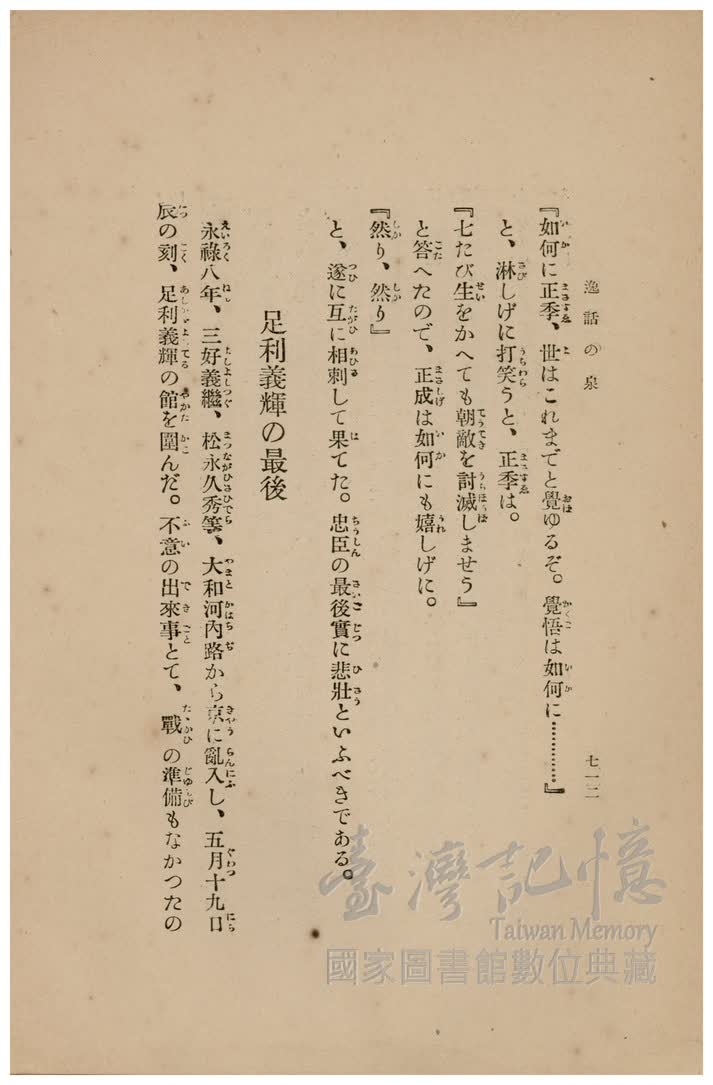 逸話の泉
七一二
『如何に正季、世はこれまでと覺ゆるぞ。覺悟は如何に…………』
と、淋しげに打笑うと、正季は。
『七たび生をかへても朝敵を討滅しませう』
と答へたので、正成は如何にも嬉しげに。
『然り、然り』
と、遂に互に相刺して果てた。忠臣の最後實に悲壯といふべきである。
足利義輝の最後
永祿八年、三好義繼、松永久秀等、大和河內路から京に亂入し、五月十九日
辰の刻、足利義輝の館を圍んだ。不意の出來事とて、戰の準備もなかつたの
臺灣記憶
Taiwan Memory
國家圖書館數位典藏